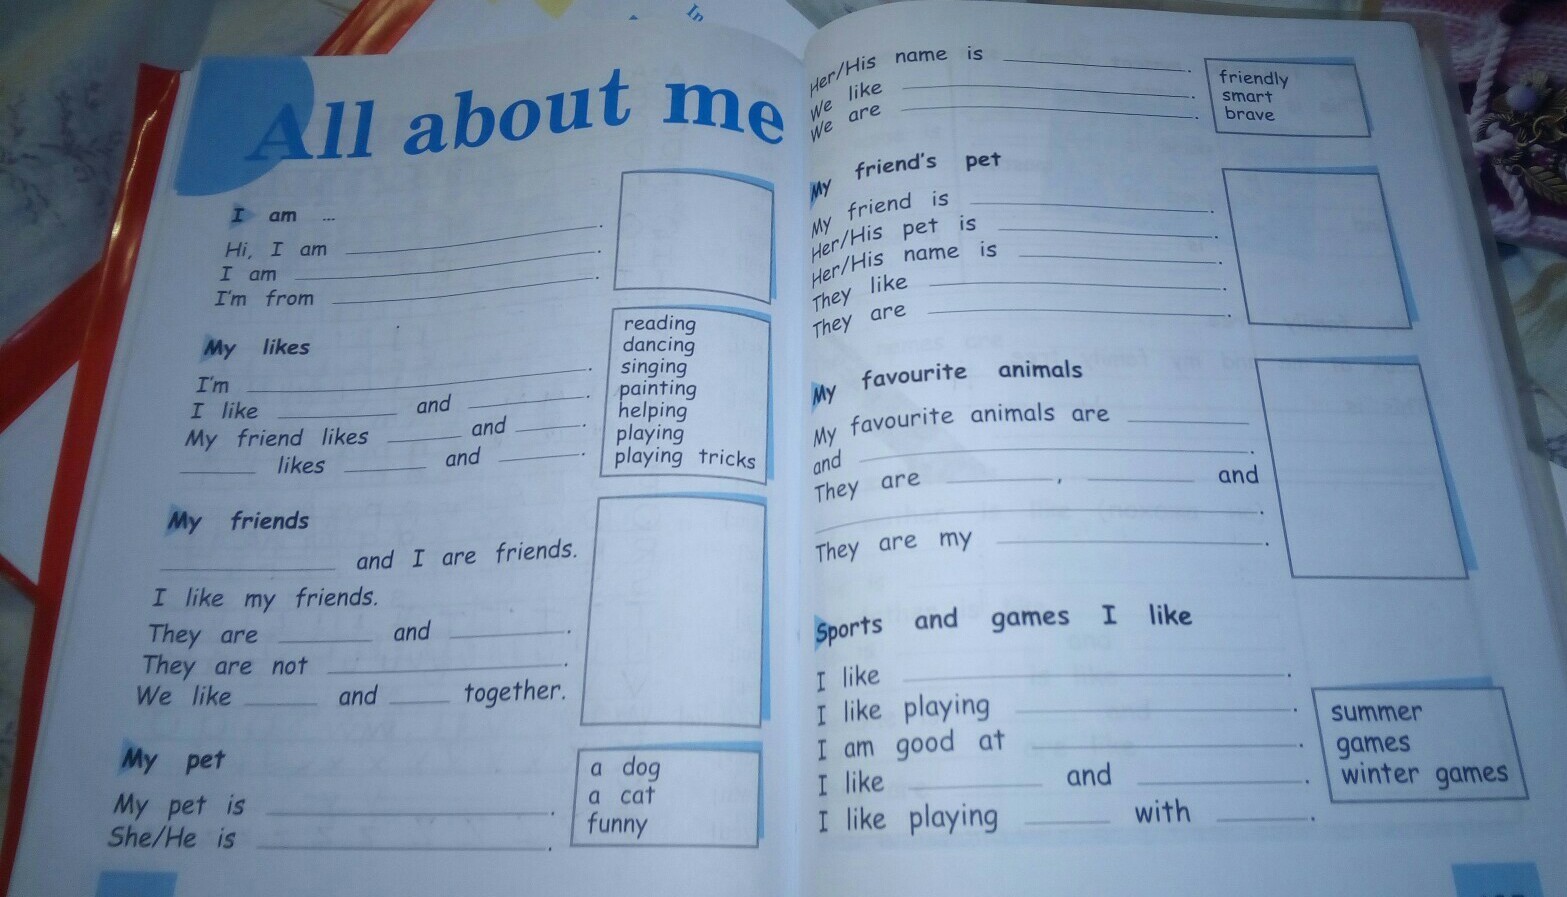 In
All about me
I am ...
Hi, I am ____.
I am ____.
I'm from ____.
My likes
I'm ____.
I like ____ and ____.
My friend likes ____ and ____.
____ likes ____ and ____.
reading
dancing
singing
painting
helping
playing
playing tricks
My friends
____ and I are friends.
I like my friends.
They are ____ and ____.
They are not ____.
We like ____ and ____ together.
My pet
My pet is ____.
She/He is ____.
a dog
a cat
funny
Her/His name is ____.
We like ____.
We are ____.
friendly
smart
brave
My friend's pet
My friend is ____.
Her/His pet is ____.
Her/His name is ____.
They like ____.
They are ____.
My favourite animals
My favourite animals are ____
and ____.
They are ____, ____ and
____.
They are my ____.
Sports and games I like
I like ____.
I like playing ____.
I am good at ____.
I like ____ and ____.
I like playing ____ with ____.
summer
games
winter games